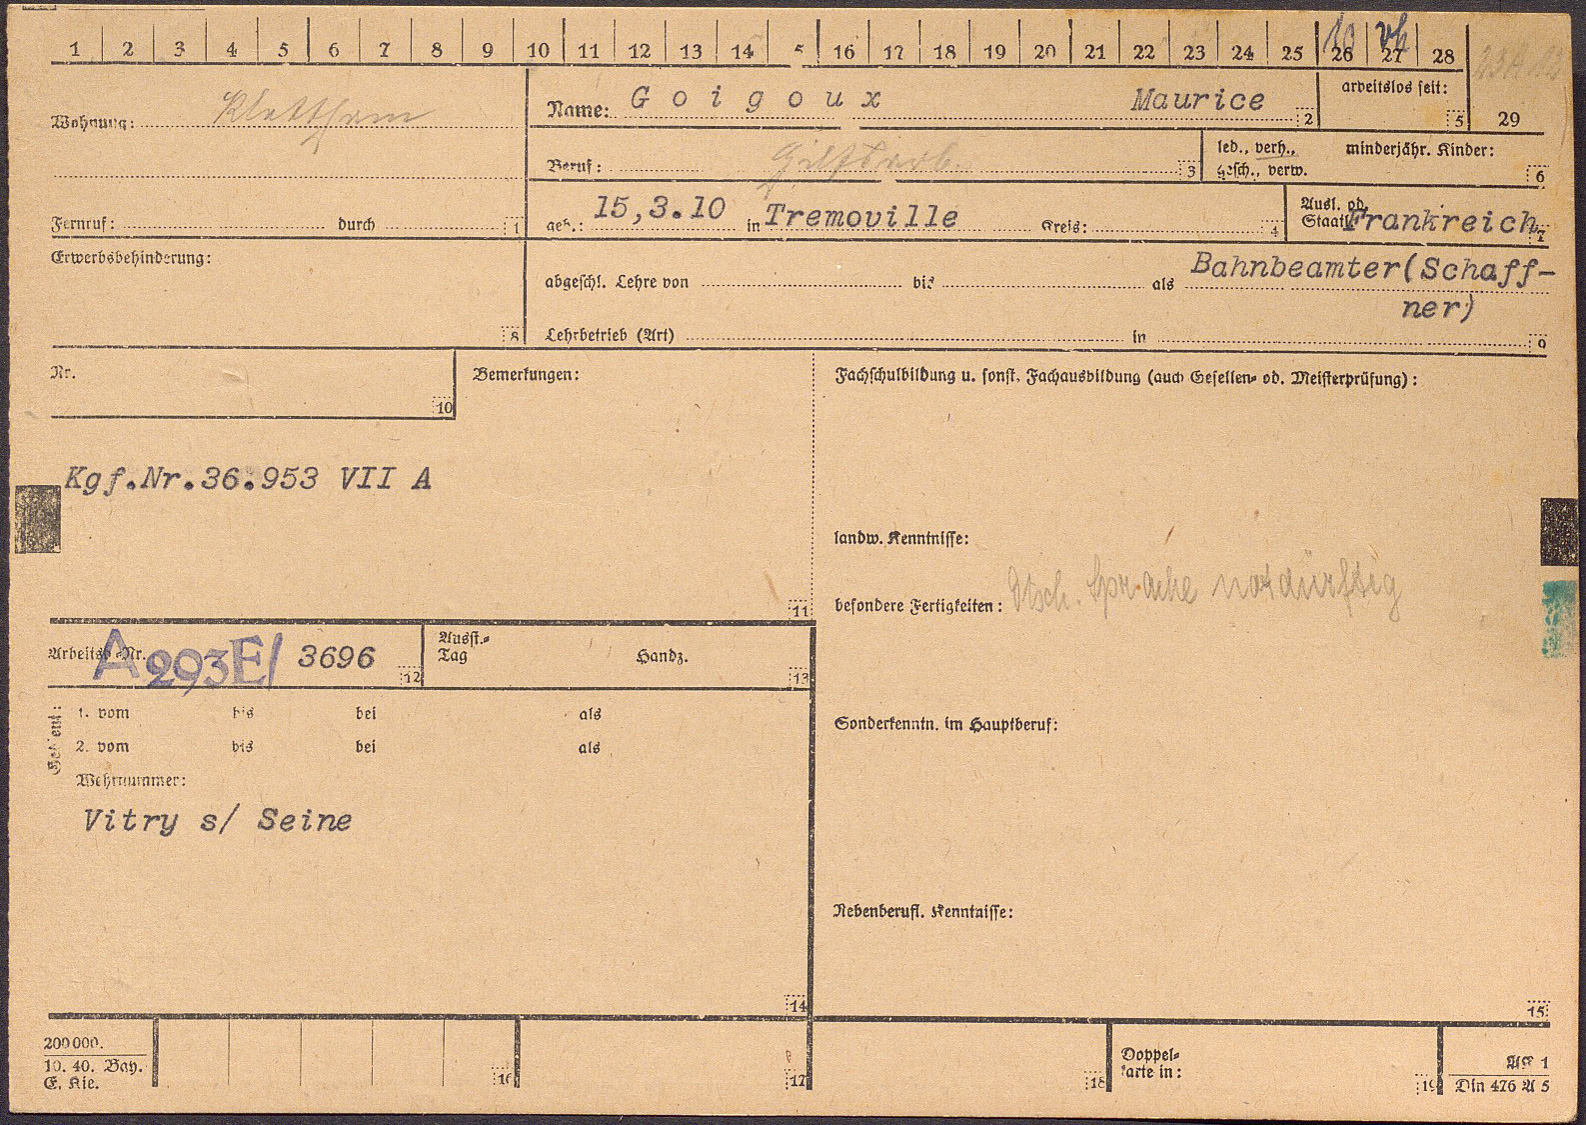 1 2 3 4 5 6 7 8 9 10 11 12 13 14 5 16 17 18 19 20 21 22 23 24 25 26 27 28
10 vh
Wohnung: Klettham
Name: Goigoux Maurice 2
arbeitslos seit: 5
29
Beruf: Hilfsarb. 3
led., verh., minderjähr. Kinder:
gesch., verw. 6
Fernruf: durch 1
geb.: 15,3.10 in Tremoville Kreis: 4
Ausl. od.
Staatl. Frankreich 7
Erwerbsbehinderung: 8
abgeschl. Lehre von bis als Bahnbeamter(Schaff-
ner)
Lehrbetrieb (Art) in 9
Nr. 10
Bemerkungen:
Fachschulbildung u. sonst. Fachausbildung (auch Gesellen- od. Meisterprüfung):
Kgf.Nr.36.953 VII A
landw. Kenntnisse:
11
besondere Fertigkeiten: dtsch. Sprache notdürftig
Arbeitsb.-Nr. A 293E/ 3696 12
Ausst.-
Tag Handz. 13
Gedient:
1. vom bis bei als
2. vom bis bei als
Sonderkenntn. im Hauptberuf:
Wehrnummer:
Vitry s/ Seine
Nebenberufl. Kenntnisse:
14
15
200000.
10. 40. Bay.
E. Kie.
16
17
18
Doppel-
karte in: 19
AK 1
Din 476 A 5